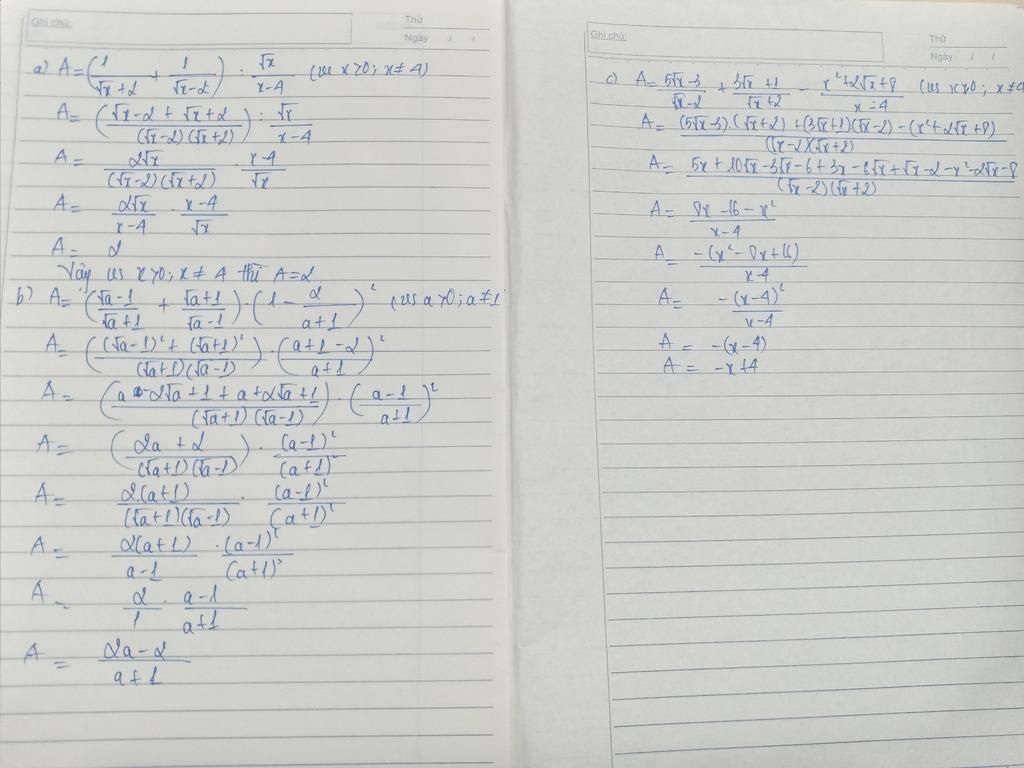 Ghi chú:
Thứ
Ngày / /
a) A = (1/(√x+2) + 1/(√x-2)) : √x/(x-4) (với x>0; x≠4)
A = ((√x-2 + √x+2)/((√x-2)(√x+2))) : √x/(x-4)
A = 2√x/((√x-2)(√x+2)) . (x-4)/√x
A = 2√x/(x-4) . (x-4)/√x
A = 2
Vậy với x>0; x≠4 thì A=2
b) A = ((√a-1)/(√a+1) + (√a+1)/(√a-1)) . (1 - 2/(a+1))² (với a>0; a≠1
A = (((√a-1)² + (√a+1)²)/((√a+1)(√a-1))) . ((a+1-2)/(a+1))²
A = ((a-2√a+1+a+2√a+1)/((√a+1)(√a-1))) . ((a-1)/(a+1))²
A = ((2a+2)/((√a+1)(√a-1))) . (a-1)²/(a+1)²
A = 2.(a+1)/((√a+1)(√a-1)) . (a-1)²/(a+1)²
A = 2(a+1)/(a-1) . (a-1)²/(a+1)²
A = 2/1 . (a-1)/(a+1)
A = (2a-2)/(a+1)
Ghi chú:
Thứ
Ngày / /
c) A = (5√x-3)/(√x-2) + (3√x+1)/(√x+2) - (x²+2√x+8)/(x-4) (với x>0; x≠4
A = ((5√x-3).(√x+2) + (3√x+1)(√x-2) - (x²+2√x+8))/((√x-2)(√x+2))
A = (5x+10√x-3√x-6+3x-6√x+√x-2-x²-2√x-8)/((√x-2)(√x+2))
A = (8x-16-x²)/(x-4)
A = -(x²-8x+16)/(x-4)
A = -(x-4)²/(x-4)
A = -(x-4)
A = -x+4